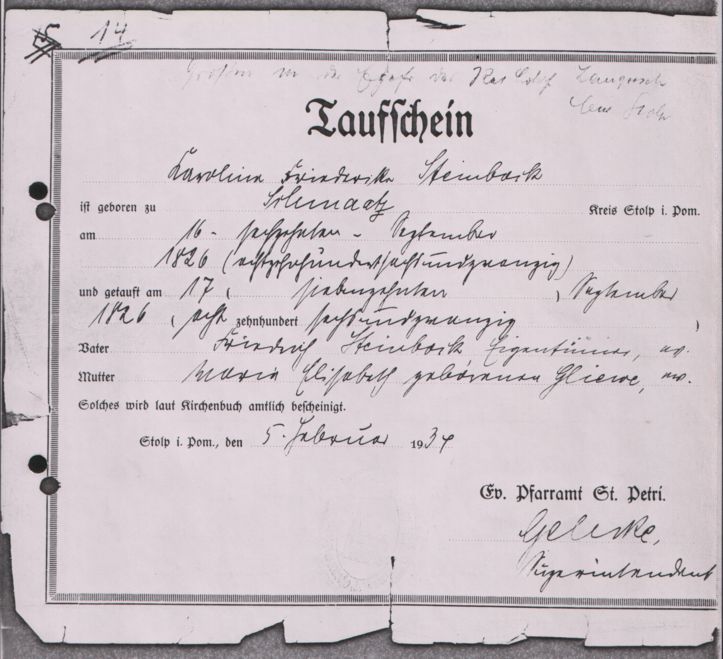 5 14
Taufschein
Karoline Friederike Steinbock
ist geboren zu Schmaatz Kreis Stolp i. Pom.
am 16- sechzehnten - September
1826 (achtzehnhundertsechsundzwanzig)
und getauft am 17 ( siebenzehnten ) September
1826 ( acht zehnhundert sechsundzwanzig )
Vater Friedrich Steinbock Eigentümer, ev.
Mutter Marie Elisabeth geborenen Gliewe, ev.
Solches wird laut Kirchenbuch amtlich bescheinigt.
Stolp i. Pom., den 5. Februar 1934
Ev. Pfarramt St. Petri.
Superintendent